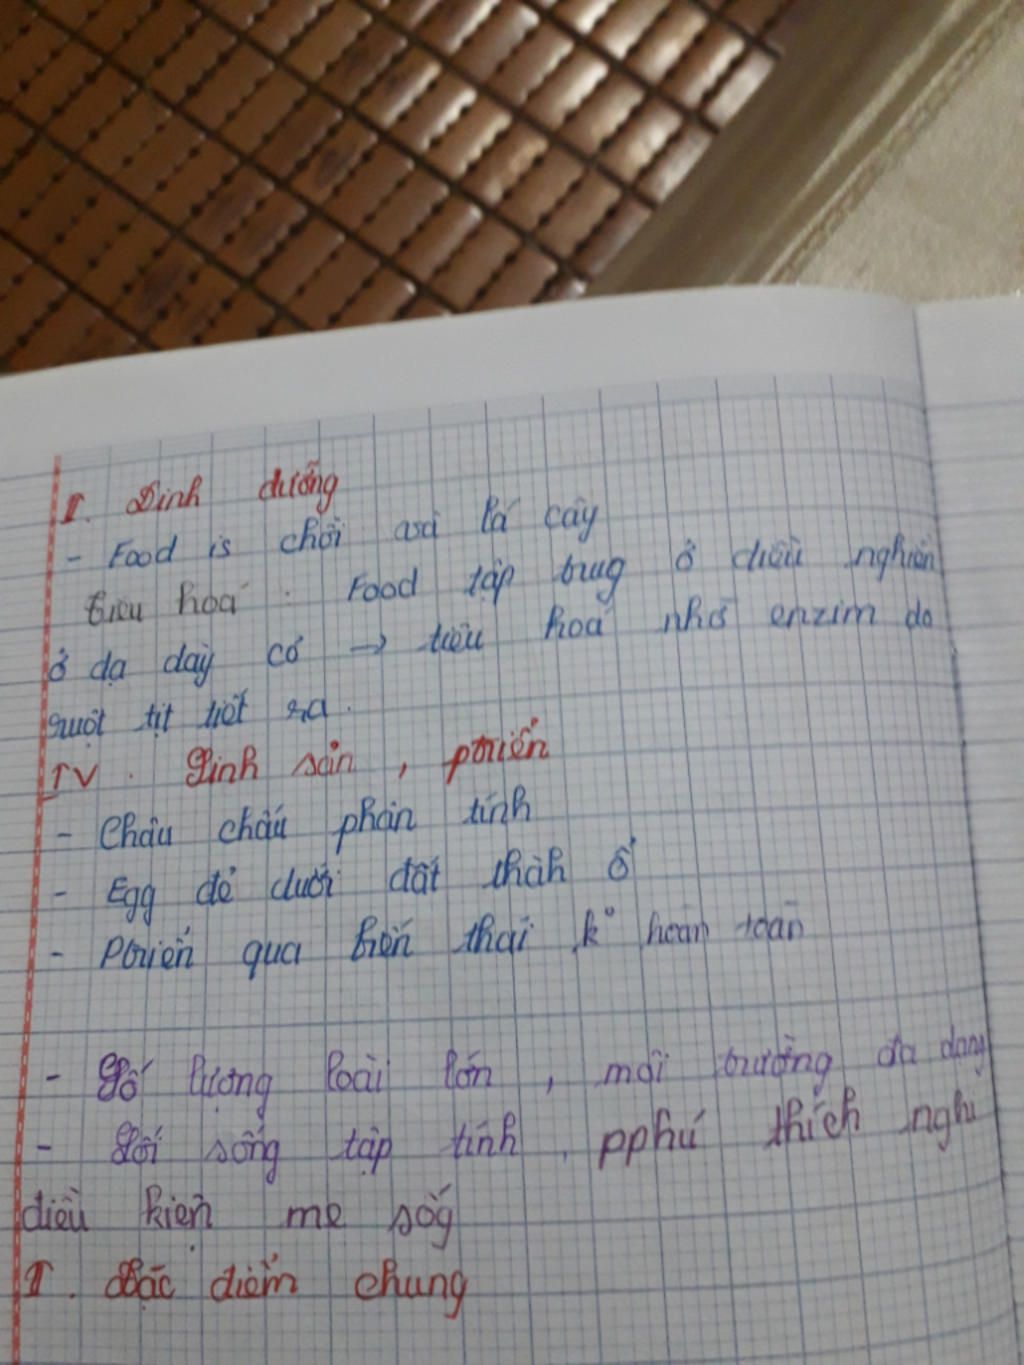 I. Dinh dưỡng
- Food is chồi và lá cây
tiêu hoá : Food tập trug ở diều nghiền
ở dạ dày cơ → tiêu hoá nhờ enzim do
ruột tịt tiết ra.
IV. Sinh sản, ptriển
- Châu chấu phân tính
- Egg đẻ dưới đất thàh ổ
- Ptriển qua biến thái k° hoàn toàn
- Số lượng loài lớn, môi trường đa dạng
- Lối sống tập tính, pphú thích nghi
điều kiện sốg
I. Đặc điểm chung